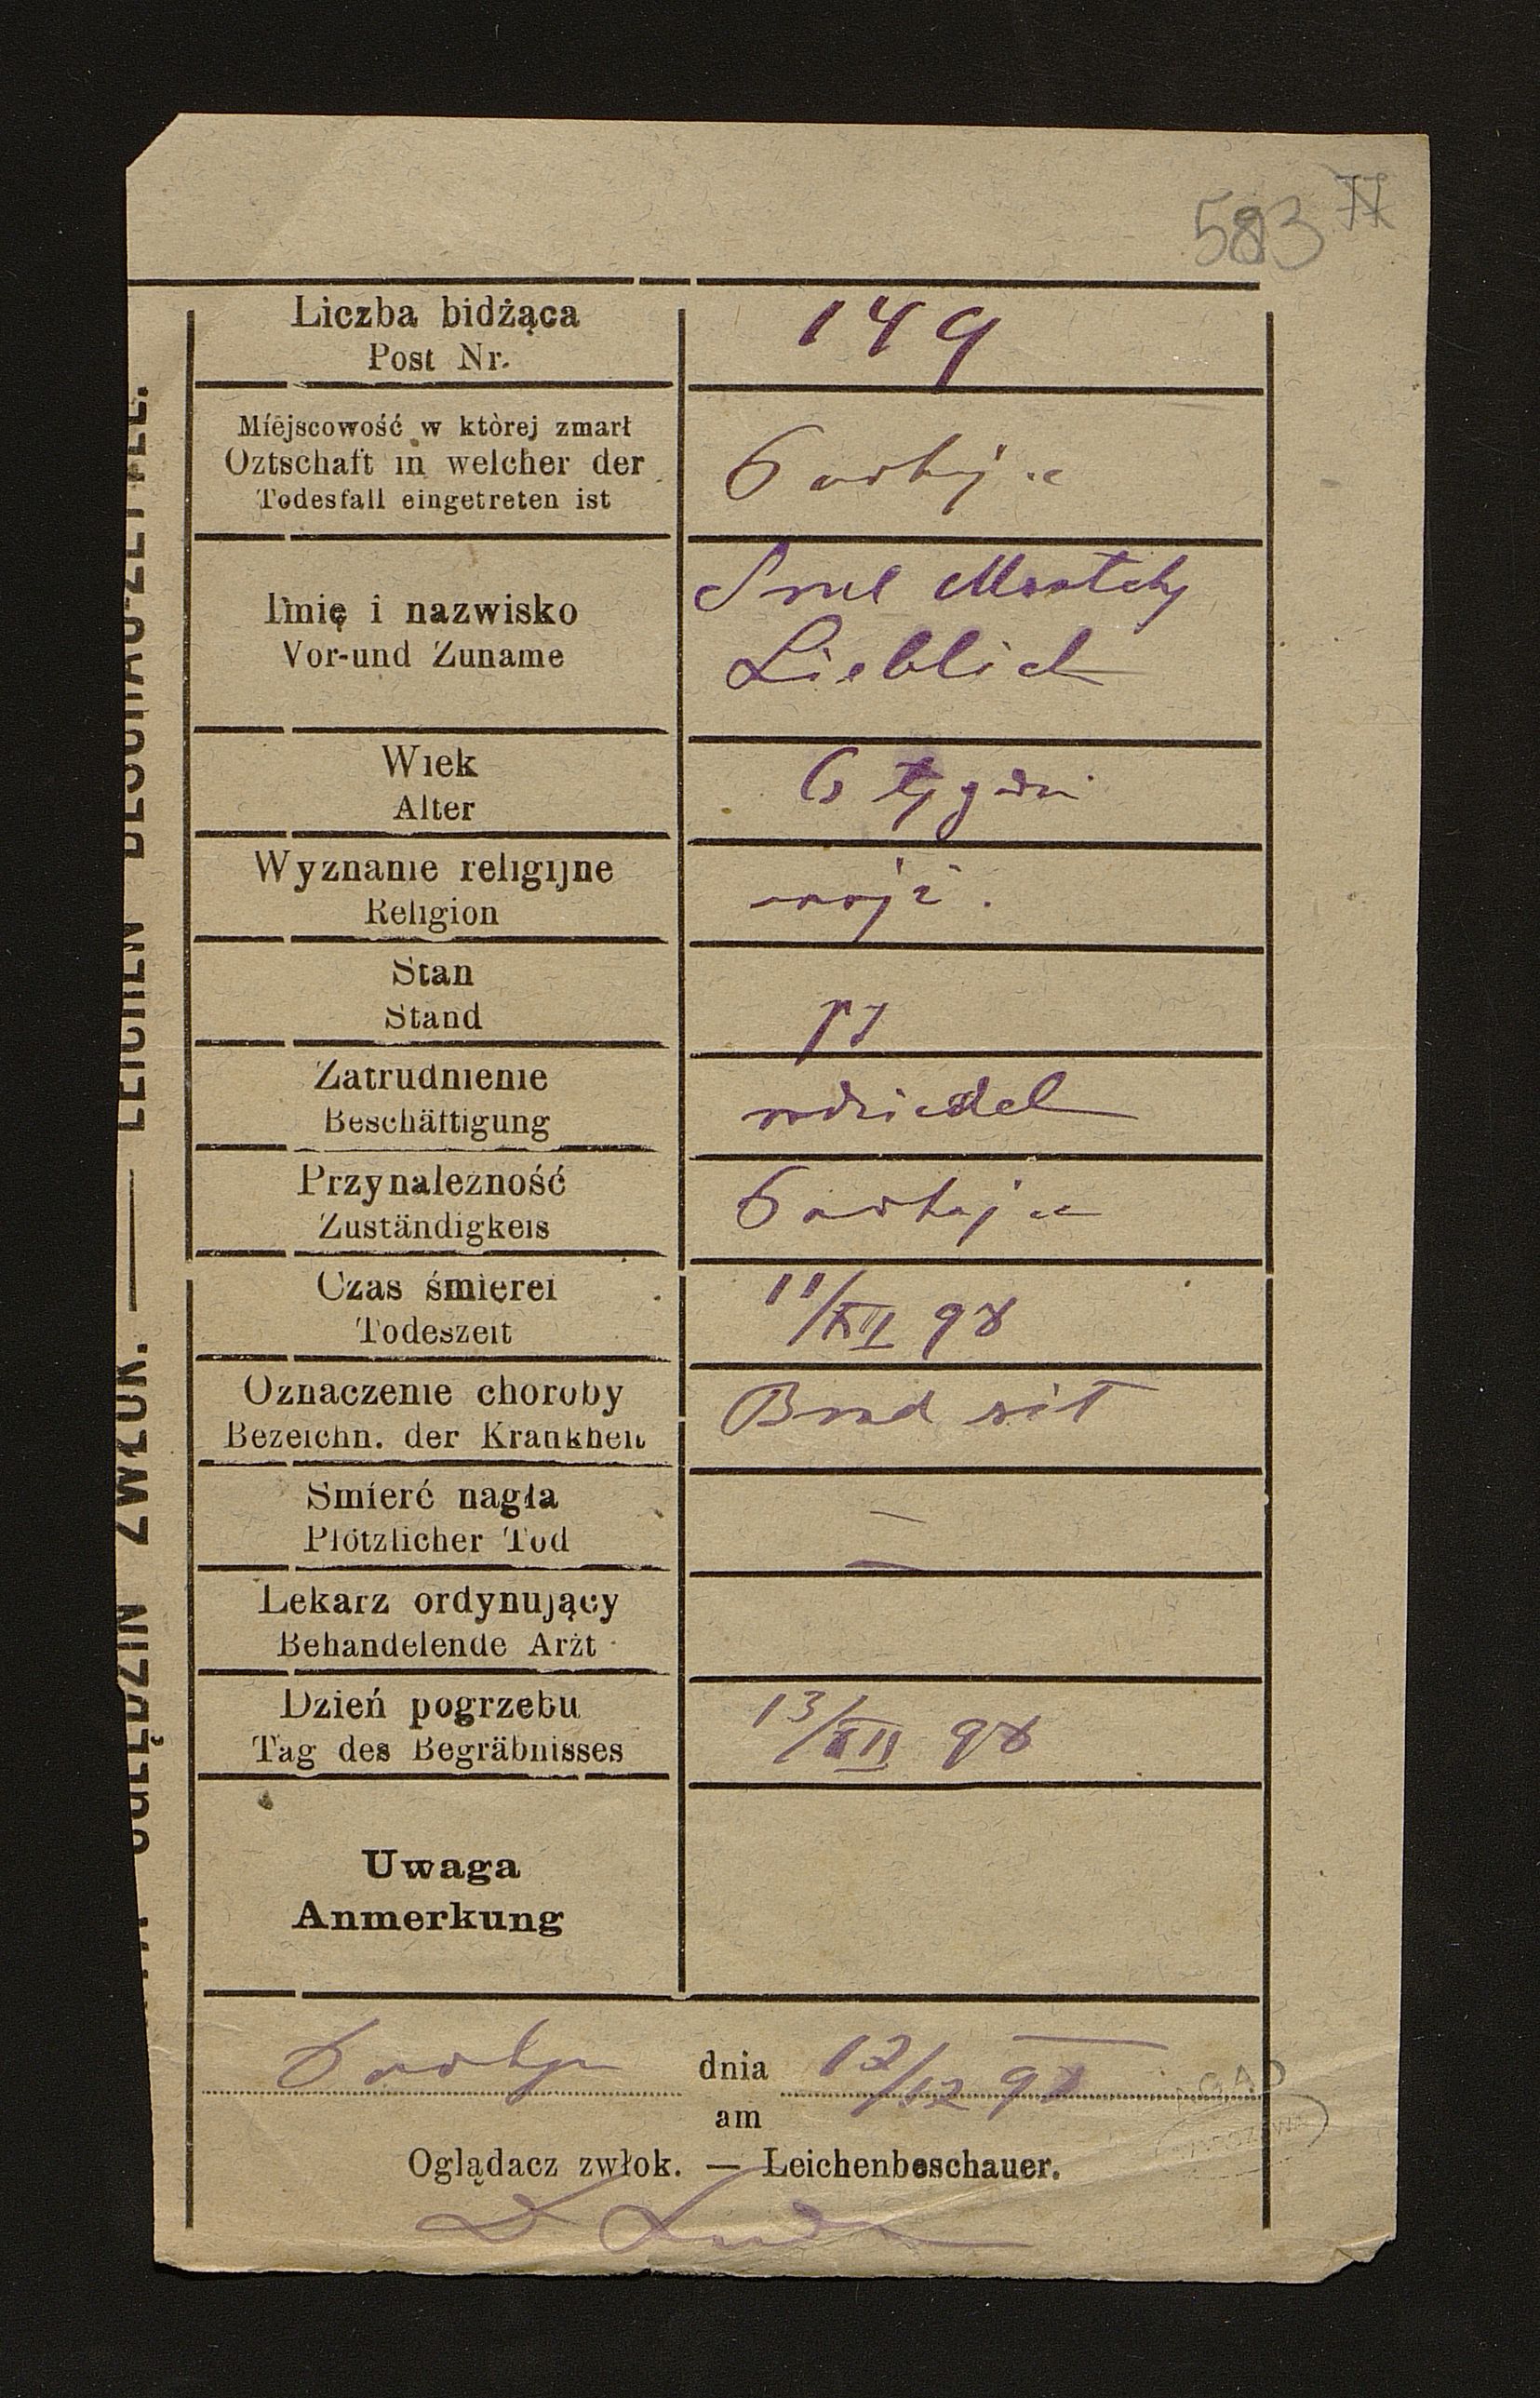 583 77
LEICHEN BESCHAU-ZETTEL.
OGLĘDZIN ZWŁOK.
Liczba bidżąca
Post Nr.
149
Miejscowość w której zmarł
Oztschaft in welcher der
Todesfall eingetreten ist
Imię i nazwisko
Vor-und Zuname
Lieblich
Wiek
Alter
6 tygodni
Wyznanie religijne
Religion
mojż.
Stan
Stand
Zatrudnienie
Beschäftigung
Przynależność
Zuständigkeis
Czas śmierei
Todeszeit
11/XII 98
Oznaczenie choroby
Bezeichn. der Krankheit
Brad sił
Smierć nagła
Plötzlicher Tod
—
Lekarz ordynujący
Behandelende Arzt
—
Dzień pogrzebu
Tag des Begräbnisses
13/XII 98
Uwaga
Anmerkung
dnia 12/12 98
am
Oglądacz zwłok. — Leichenbeschauer.